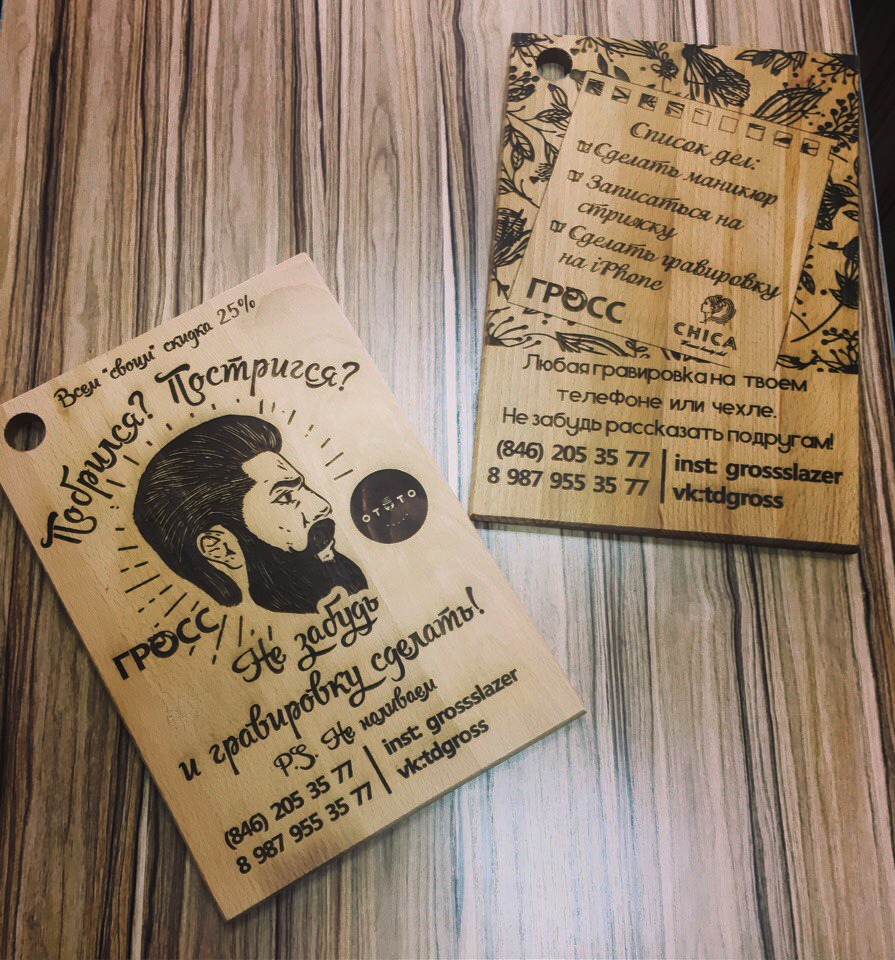 Всем "своим" скидка 25%
Побрился? Постригся?
OTOTO
ГРОСС
Не забудь
и гравировку сделать!
P.S. Не наливаем
(846) 205 35 77
8 987 955 35 77
inst: grossslazer
vk:tdgross
Список дел:
Сделать маникюр
Записаться на
стрижку
Сделать гравировку
на iPhone
ГРОСС
CHICA
Любая гравировка на твоем
телефоне или чехле.
Не забудь рассказать подругам!
(846) 205 35 77
8 987 955 35 77
inst: grossslazer
vk:tdgross